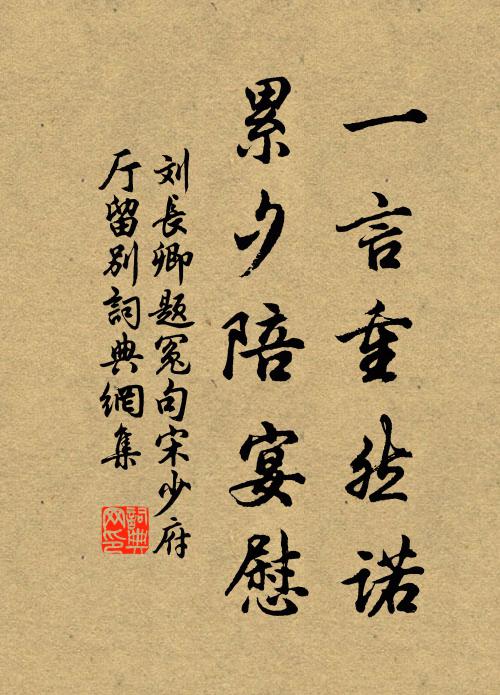 一言重然诺
累夕陪宴慰
刘長卿题冤句宋少府
厅留别詞典網集
詞典
网印